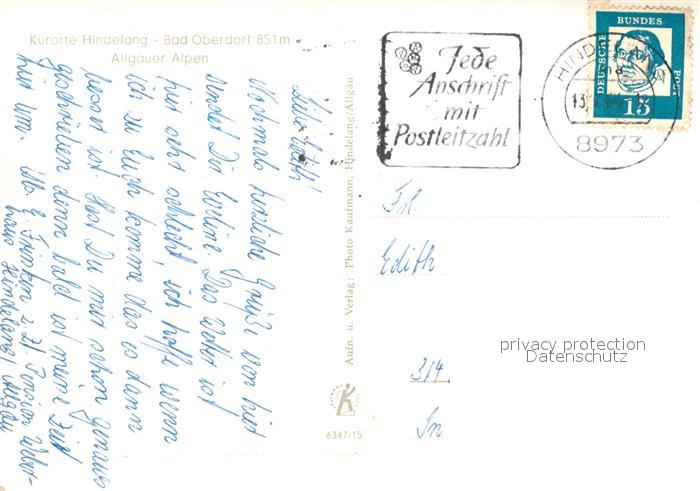 Kurorte Hindelang - Bad Oberdorf 851 m
Allgäuer Alpen
Liebe Edith!
Nochmals herzliche Grüße von hier
sendet Dir Eveline. Das Wetter ist
hier sehr schlecht ich hoffe wenn
ich zu Euch komme das es dann
besser ist. Hast Du mir schon genaues
geschrieben denn bald ist meine Zeit
hier um.
z. Zt. Pension Weber-
haus Hindelang Allgäu
Aufn. u. Verlag: Photo Kaufmann, Hindelang/Allgäu
6347/15
Jede
Anschrift
mit
Postleitzahl
HINDEL
13.
8973
DEUTSCHE
BUNDES
POST
15
Frl.
Edith
314
In
privacy protection
Datenschutz